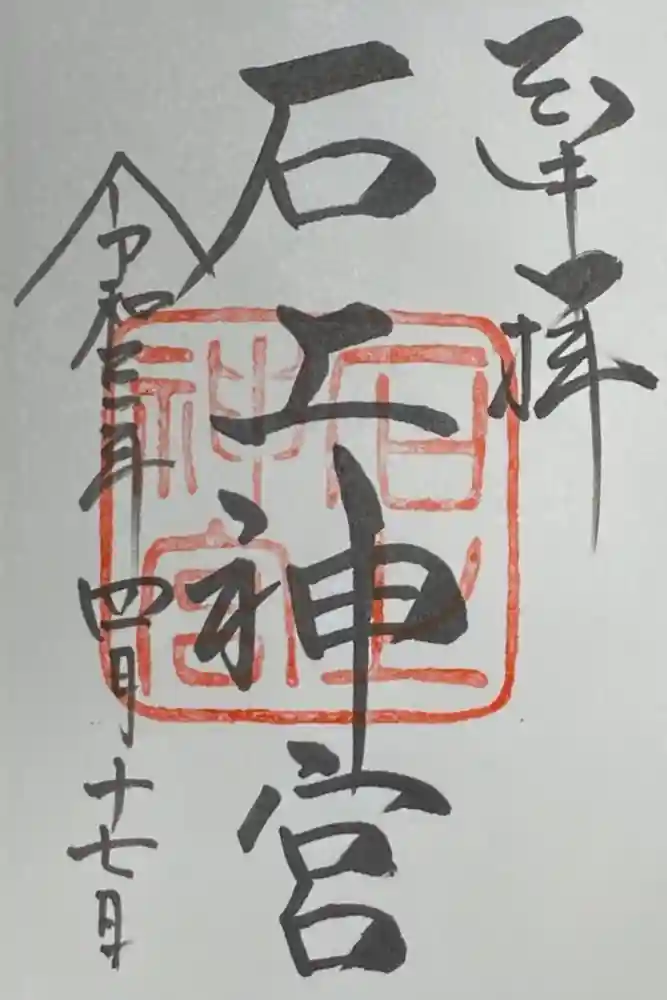 奉拝
石上神宮
令和三年四月十七日
石上
神宮